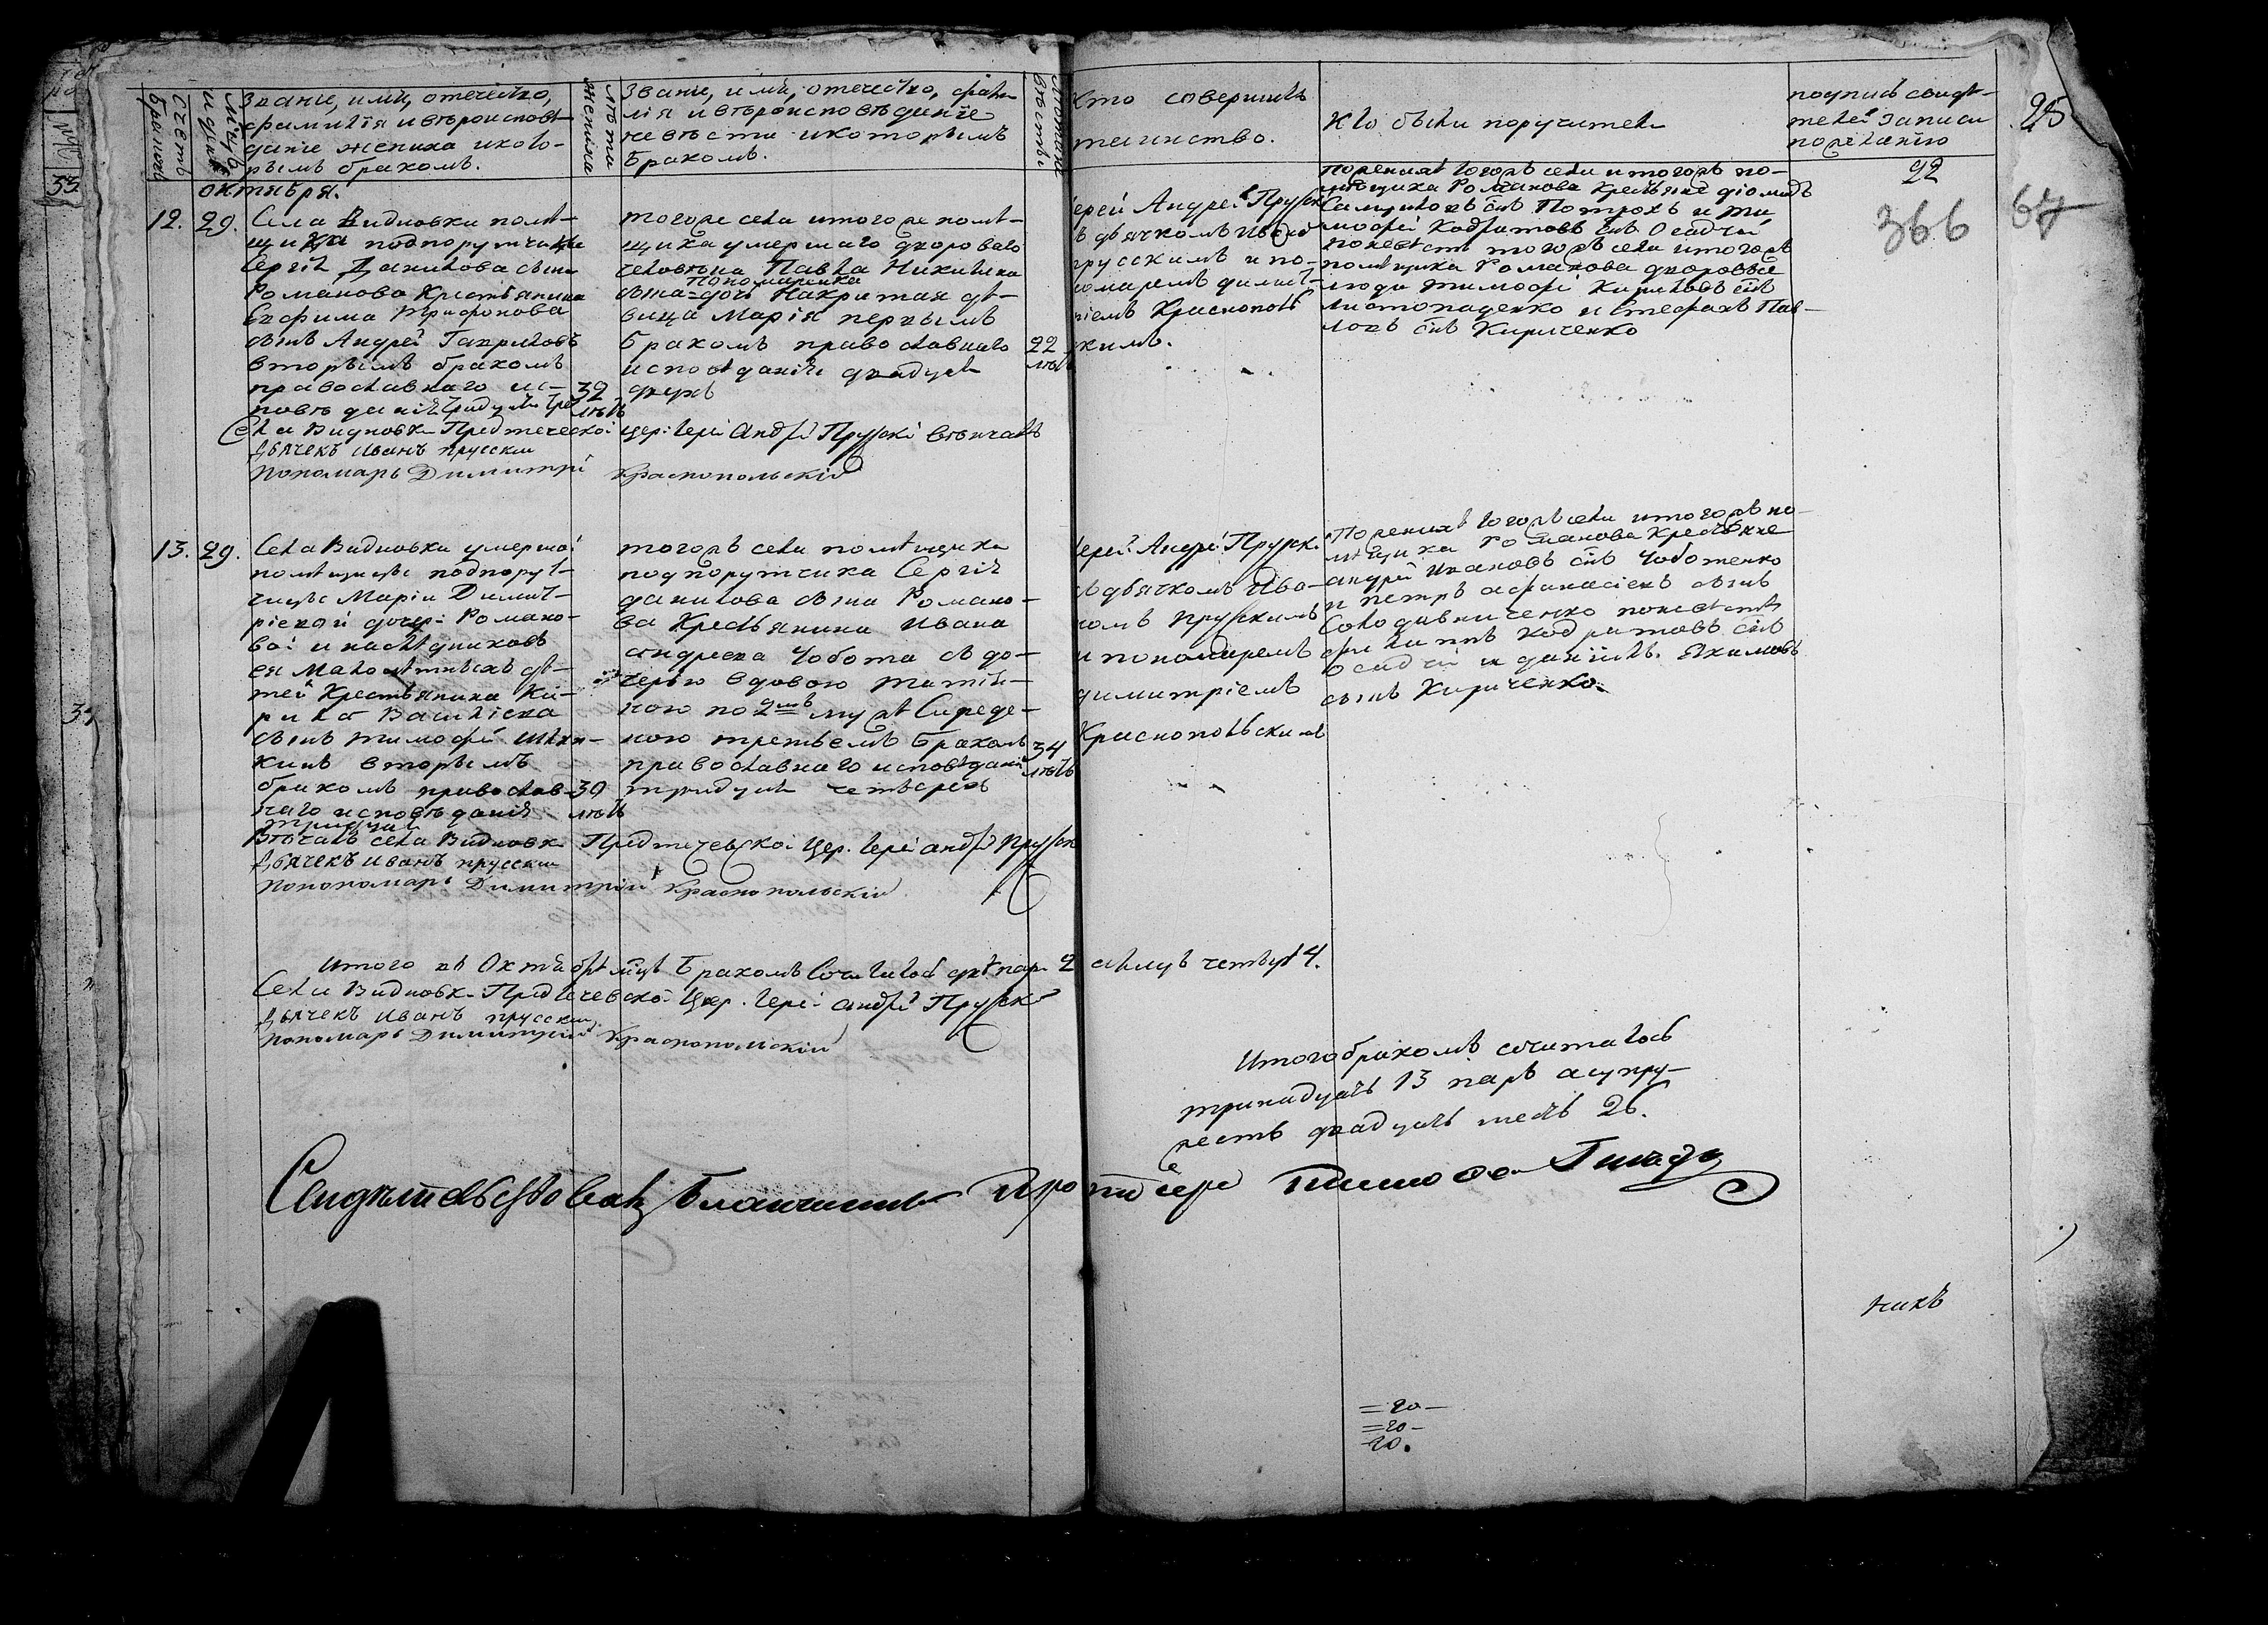 Счетъ браковъ
Мѣсяцъ и день
Званіе, имя, отечество,
фамилія и вѣроисповѣ-
даніе жениха и кото-
рымъ бракомъ.
Лѣта жениха
Званіе, имя, отечество, фами-
лія и вѣроисповѣданіе
невѣсты и которымъ
бракомъ.
Лѣта невѣсты
Кто совершилъ
таинство.
Кто были поручители
подпись свидѣ-
телей записи
по желанію
25
22
366
67
октября.
12. 29.
Села Видновки помѣ-
щика подпорутчика
Сергія Данилова сына
Романова Крестьянина
Евфима Трифонова
сынъ Андрей Гавриловъ
вторымъ бракомъ
православнаго ис-
повѣданія тридцати
32
лѣтъ
тогоже села и тогоже помѣ-
щика умершаго двороваго
человѣка Павла Никитина
Пономаренка
сына дочь Накритая дѣ-
вица Марія первымъ
бракомъ православнаго
исповѣданія двадцати
двухъ
22
лѣтъ
ерей Андрей Прусск
ъ дьячкомъ Иваном
прусскимъ и по-
номаремъ димит-
ріемъ Краснополь
кимъ.
По женихѣ тогожъ села и тогожъ по-
мѣщика Романова Крестьяне діомидъ
Самуиловъ снъ Потрохъ и Ти
мофей Кодратовъ снъ Осадчій
по невѣстѣ тогожъ села и тогожъ
помѣщика Романова дворовые
люди тимофей Кириловъ снъ
Листопаденко и Стефанъ Пав-
ловъ снъ Кириченко
Села Видновки Предтеческой цер: Іерей Андрей Прусскій вѣнчалъ
Дьячекъ Иванъ прусскій
Пономарь Димитрій Краснопольскій
13. 29.
Села Видновки умершой
помѣщицы подпорут-
чицы Маріи Димит-
ріевой дочери Романо-
вой и наслѣдниковъ
ея малолѣтныхъ дѣ-
тей Крестьянина Ки-
рила Василіева
сынъ тимофей
вторымъ
бракомъ православ-
наго исповѣданія
тридцати
30
лѣтъ
тогожъ села помѣщика
подпорутчика Сергія
данилова сына Романо-
ва Крестьянина Ивана
андреева Чобота съ до-
черью вдовою
ною по 2мъ мужѣ
ною третьемъ бракомъ
православнаго исповѣданія
тридцати четырехъ
34
лѣтъ
ерей Андрей Прусск
съ дьячкомъ Ива-
номъ Прусскимъ
и пономаремъ
димитріемъ
Краснопольскимъ
По женихѣ тогожъ села и тогожъ по-
мѣщика Романова Крестьяне
андрей Ивановъ снъ Чоботенко
и петръ афанасіевъ сынъ
Солодовниченко по невѣстѣ
филиппъ Кодратовъ снъ
Осадчій и даніилъ Якимовъ
сынъ Кириченко.
Вѣнчалъ села Видновк Предтечевской Цер. Іерей андрей Прусск
Дьячекъ Иванъ прусскій
Понопомарь Димитрій Краснопольскій
Итого въ Октябрѣ мцѣ бракомъ сочиталось двѣ пары 2 а лицъ четыре 4.
Села Видновк Предтечевской Цер. Іерей андрей Прусскій
Дьячекъ Иванъ прусскій
Пономарь Димитрій Краснопольскій
Итого бракомъ сочиталось
тринадцать 13 паръ а супру-
жествъ двадцать шесть 26.
Свидѣтельствовалъ Благочинный Протоіерей
никъ
=20-
=20-
20.